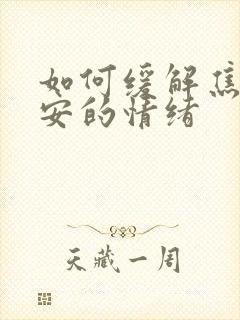 如何缓解焦
安的情绪
天藏一周